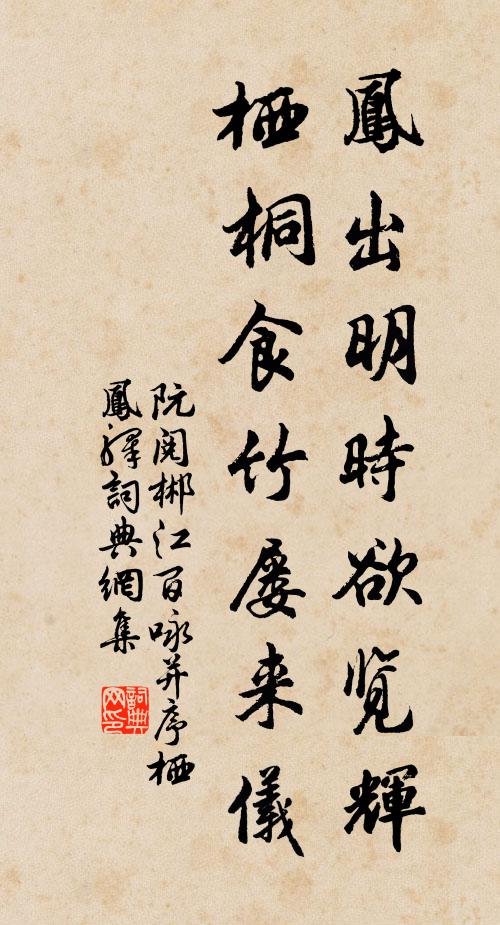 鳳出明時欲览輝
栖桐食竹屡来儀
阮阅郴江百咏并序栖
鳳驛詞典網集
詞典
网印